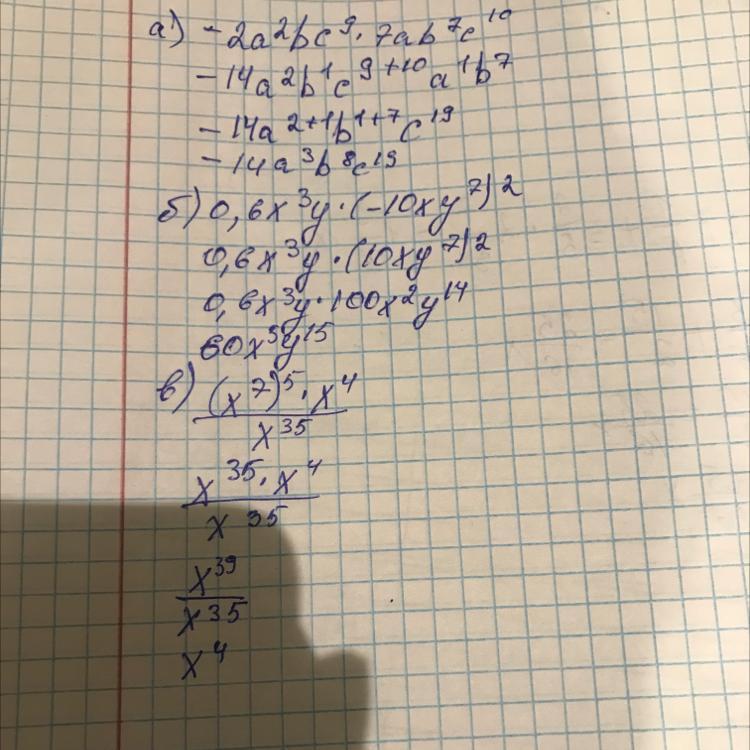 а) -2a²bc⁹·7ab⁷c¹⁰
-14a²b¹c⁹⁺¹⁰a¹b⁷
-14a²⁺¹b¹⁺⁷c¹⁹
-14a³b⁸c¹⁹
б) 0,6x³y·(-10xy⁷)²
0,6x³y·(10xy⁷)²
0,6x³y·100x²y¹⁴
60x⁵y¹⁵
в) (x⁷)⁵·x⁴
x³⁵
x³⁵·x⁴
x³⁵
x³⁹
x³⁵
x⁴